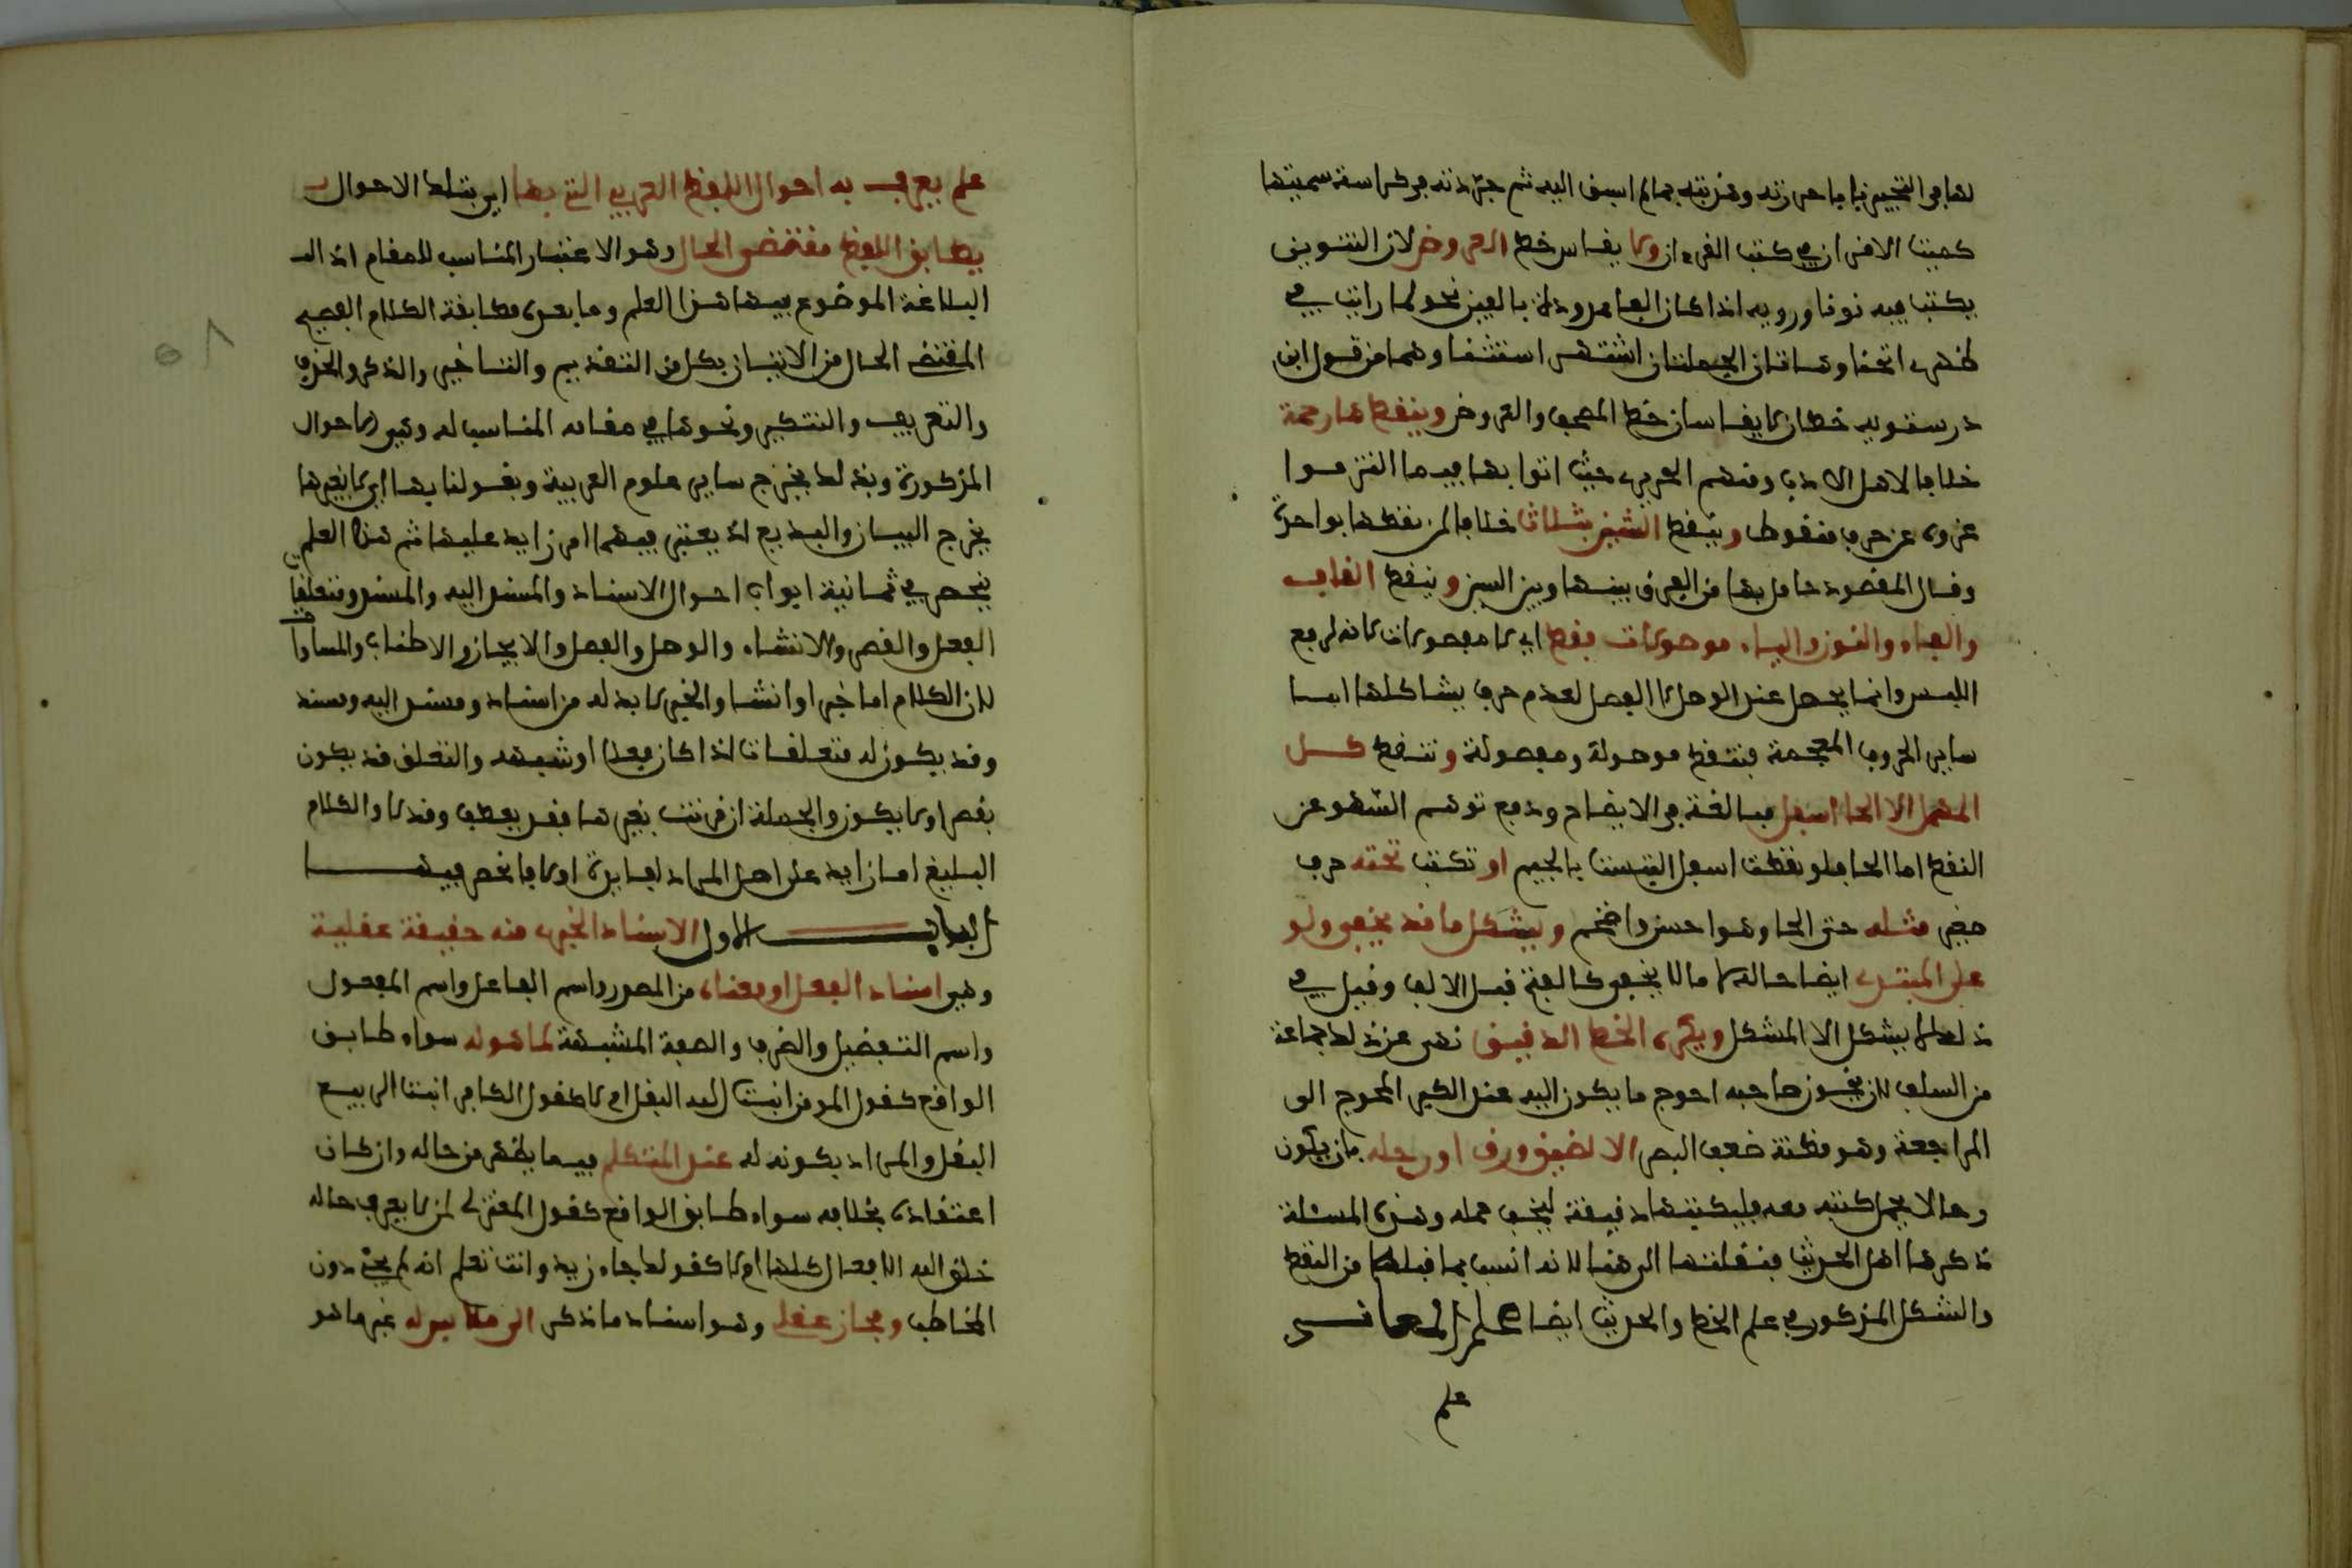 لها في التحبير فاما حررته وهذبته بما لم اسبق اليه ثم جردته في كراسة سميتها
كميت الاقران في كتب القرءان ولا يقاس خط العروض لان التنوين
يكتب فيه نونا ورويه اذا كان الفا مدودة بالعين نحو لما رايت في
ظهري انحنا وهاتان الجملتان اشتهر استثنا وهما من قول ابن
درستويه خطان لا يقاسان خط المصحف والعروض وينقط ها رحمة
خلافا لاهل الادب ومنهم الحريري حيث اتوا بها فيما التزموا
عروه عن حرف منقوط وينقط الشين بثلاث خلافا لمن نقطها بواحدة
وقال المقصود حاصل بها من الفرق بينها وبين السين وينقط القاف
والفاء والنون والياء موصولات فقط اي لا مفصولات لانه لرفع
اللبس وانما يحصل عند الوصل لا الفصل لعدم حرف يشاكلها اما
ساير الحروف المعجمة فتنقط موصولة ومفصولة وتنقط كل
المهمل الا الحا اسفل مبالغة في الايضاح ودفع توهم السهو عن
النقط اما الحا فلو نقطت اسفل التبست بالجيم او تكتب تحته حرف
صغير مثله حتى الحا وهو احسن واضخم ويشكل ما قد يخفى ولو
على المبتدي ايضاحا له لا ما لا يخفى كالفتح قبل الالف وقيل في
ذلك لا يشكل الا المشكل ويكره الخط الدقيق نهى عن ذلك جماعة
من السلف لان يخون صاحبه احوج ما يكون اليه عند الكبر المحوج الى
المراجعة وهو مظنة ضعف البصر الا لضيق ورق او رحله بان يكون
رحالا يحمل كتبه معه فليكتبها دقيقة ليخف حمله وهذه المسئلة
ذكرها اهل الحديث فنقلتها الى هنا لانه انسب بما قبلها من النقط
والشكل المذكور في علم الخط والحديث ايضا علم المعاني
علم
علم يعرف به احوال اللفظ العربي التي بها اي بتلك الاحوال
يطابق اللفظ مقتضى الحال وهو الاعتبار المناسب للمقام اذ الـ
البلاغة الموضوع بيها هذا العلم وما بعده مطابقة الكلام الفصيح
المقتضى الحال من الاتيان بكل من التقديم والتاخير والذكر والحذف
والتعريف والتنكير ونحوها في مقامه المناسب له وهي الاحوال
المذكورة وبذلك يخرج ساير علوم العربية وبقولنا بها اي لا بغيرها
يخرج البيان والبديع اذ يعتبر فيهما امر زايد عليها ثم هذا العلم
ينحصر في ثمانية ابواب احوال الاسناد والمسند اليه والمسند ومتعلقات
الفعل والقصر والانشاء والوصل والفصل والايجاز والاطناب والمساواة
لان الكلام اما خبر او انشا والخبر لا بد له من اسناد ومسند اليه ومسند
وقد يكون له متعلقات اذا كان فعلا او شبهه والتعلق قد يكون
بقصر او لا يكون والجملة ان قرنت بغيرها فقد يعطف وقد لا والكلام
البليغ اما زايد على اصل المراد لفايدة او لا فانحصر فيها
الباب الاول الاسناد الخبري منه حقيقة عقلية
وهي اسناد الفعل او معناه من المصدر واسم الفاعل واسم المفعول
واسم التفضيل والظرف والصفة المشبهة لما هو له سواء طابق
الواقع كقول المومن انبت الله البقل ام لا كقول الكافر انبت الربيع
البقل والمراد بكونه له عند المتكلم فيما يظهر من حاله وان كان
اعتقاده بخلافه سواء طابق الواقع كقول المعتزلي لمن لا يعرف حاله
خلق الله الافعال كلها ام لا كقولك جاء زيد وانت تعلم انه لم يجئ دون
المخاطب ومجاز عقلي وهو اسناد ما ذكر الى ملابس له غير ما هو